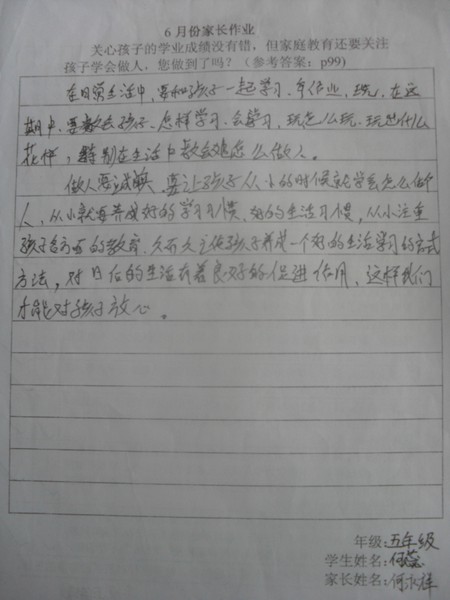 6月份家长作业
关心孩子的学业成绩没有错，但家庭教育还要关注
孩子学会做人，您做到了吗？（参考答案：p99)
在日常生活中，要和孩子一起学习、作业、玩、在这
期中、要教会孩子、怎样学习、会学习，玩怎么玩、玩些什么
花样，特别在生活中教会她怎么做人。
做人要诚实、要让孩子从小的时候就学会怎么做
人、从小就要养成好的学习习惯、好的生活习惯，从小注重
孩子各方面的教育、久而久之使孩子养成一个好的生活学习的方式
方法，对日后的生活有着良好的促进作用，这样我们
才能对孩子放心。
年级：五年级
学生姓名：何蕊
家长姓名：何永祥